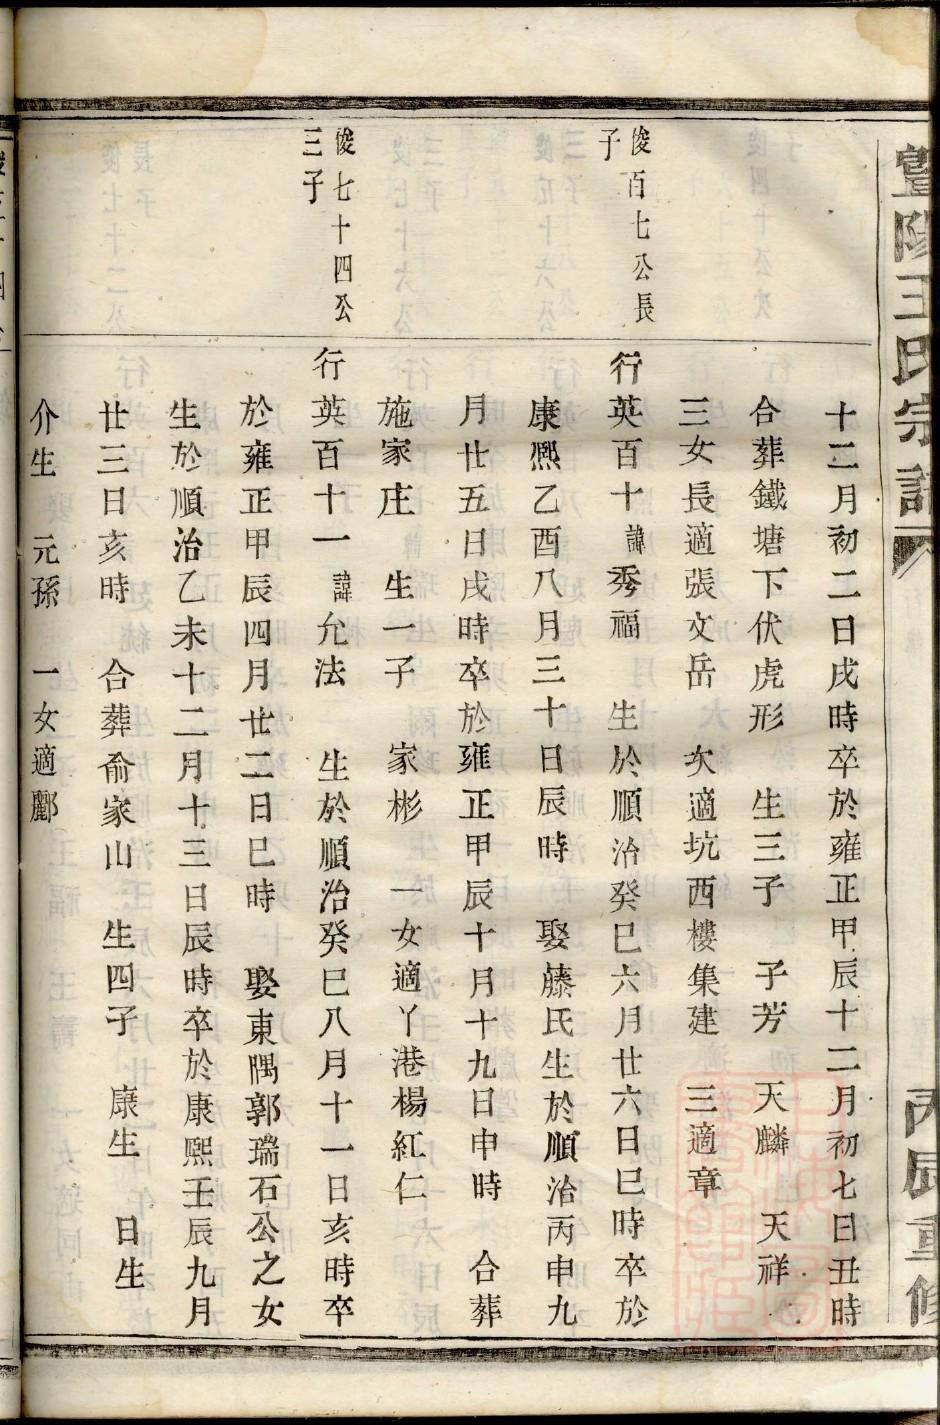 暨陽王氏宗譜
丙辰重修
十二月初二日戌時卒於雍正甲辰十二月初七日丑時
合葬鐵塘下伏虎形 生三子 子芳 天麟 天祥
三女長適張文岳 次適坑西樓集建 三適章
俊百七公長
子
行英百十諱秀福 生於順治癸巳六月廿六日巳時卒於
康熙乙酉八月三十日辰時 娶藤氏生於順治丙申九
月廿五日戌時卒於雍正甲辰十月十九日申時 合葬
施家庄 生一子 家彬 一女適丫港楊紅仁
俊七十四公
三子
行英百十一諱允法 生於順治癸巳八月十一日亥時卒
於雍正甲辰四月廿二日巳時 娶東隅郭瑞石公之女
生於順治乙未十二月十三日辰時卒於康熙壬辰九月
廿三日亥時 合葬俞家山 生四子 康生 日生
介生 元孫 一女適酈